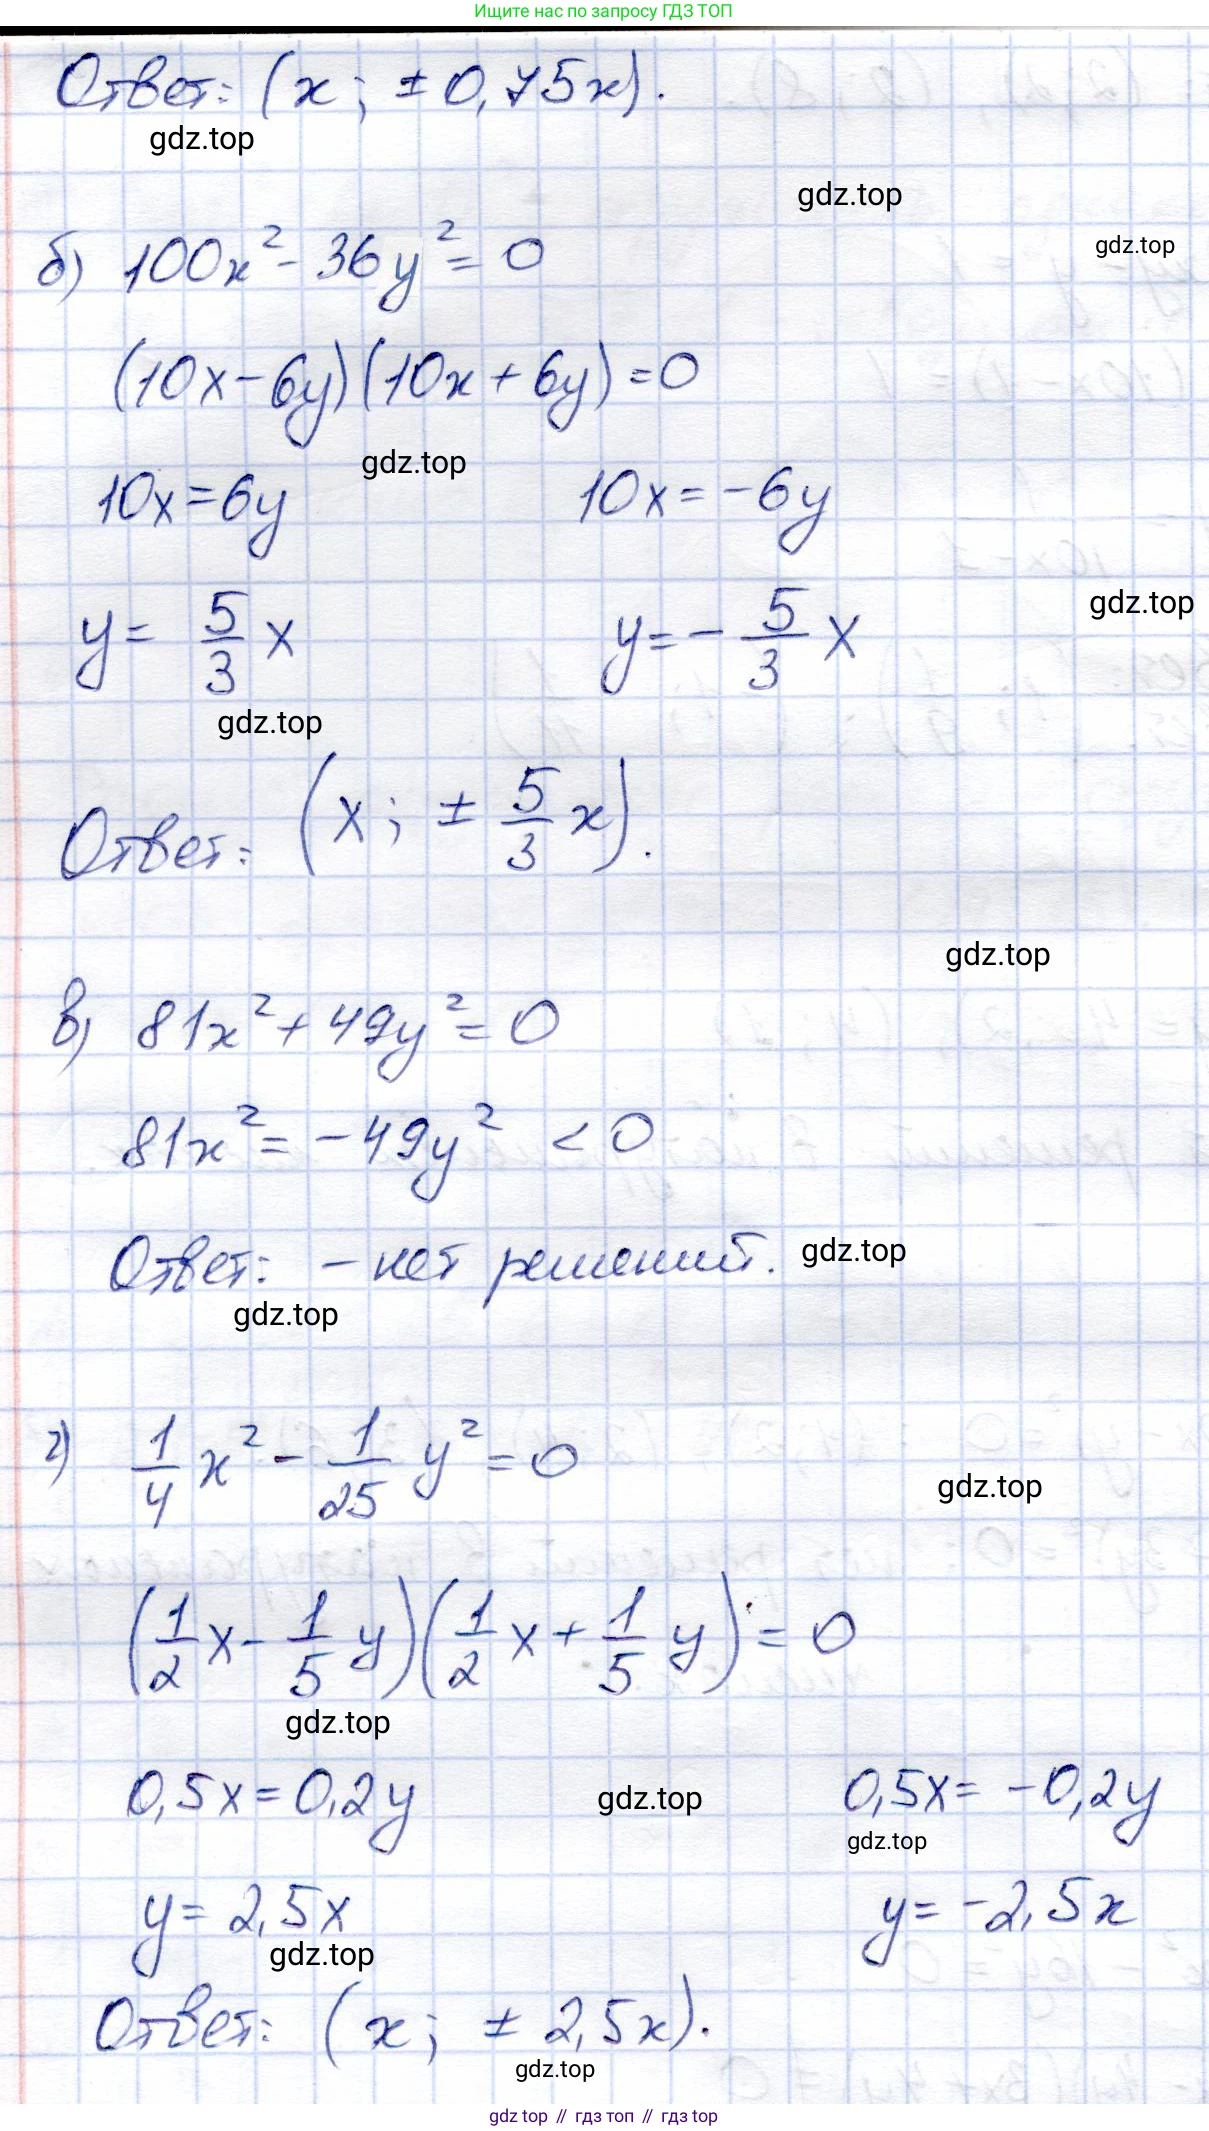 Ищите нас по запросу ГДЗ ТОП
Ответ: (x; ± 0,75x).
gdz.top
gdz.top
б) 100x² - 36y² = 0
gdz.top
(10x - 6y)(10x + 6y) = 0
gdz.top
10x = 6y 10x = -6y
y = 5/3 x y = - 5/3 x
gdz.top
gdz.top
Ответ: (x; ± 5/3 x).
gdz.top
в) 81x² + 49y² = 0
81x² = -49y² < 0
Ответ: - нет решений.
gdz.top
gdz.top
г) 1/4 x² - 1/25 y² = 0
gdz.top
(1/2 x - 1/5 y)(1/2 x + 1/5 y) = 0
gdz.top
0,5x = 0,2y 0,5x = -0,2y
gdz.top
gdz.top
y = 2,5x y = -2,5x
gdz.top
Ответ: (x; ± 2,5x).
gdz.top
gdz top // гдз топ // gdz top